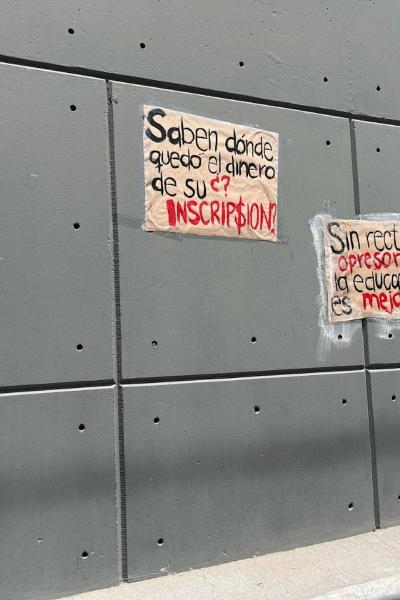 Saben dónde
quedó el dinero
de su ¿?
INSCRIP$ION?
Sin rect
opresor
la educa
es mejo